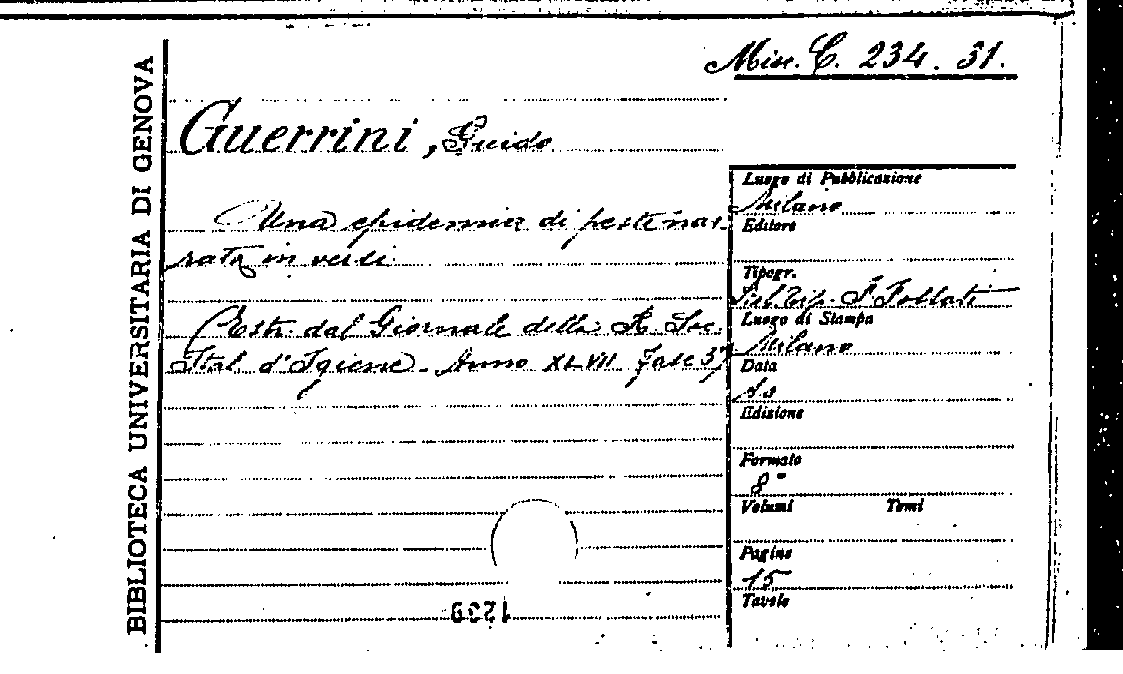 Misc. C. 234. 31.
BIBLIOTECA UNIVERSITARIA DI GENOVA
Guerrini, Guido
Una epidemia di peste nar-
rata in versi
(Estr. dal Giornale della R. Soc.
Ital. d'Igiene - Anno XLVII fasc 37
Luogo di Pubblicazione
Milano
Editore
Tipogr.
Stab. Tip.
Luogo di Stampa
Milano
Data
Edizione
Formato
8°
Volumi Tomi
Pagine
15
Tavole
1239